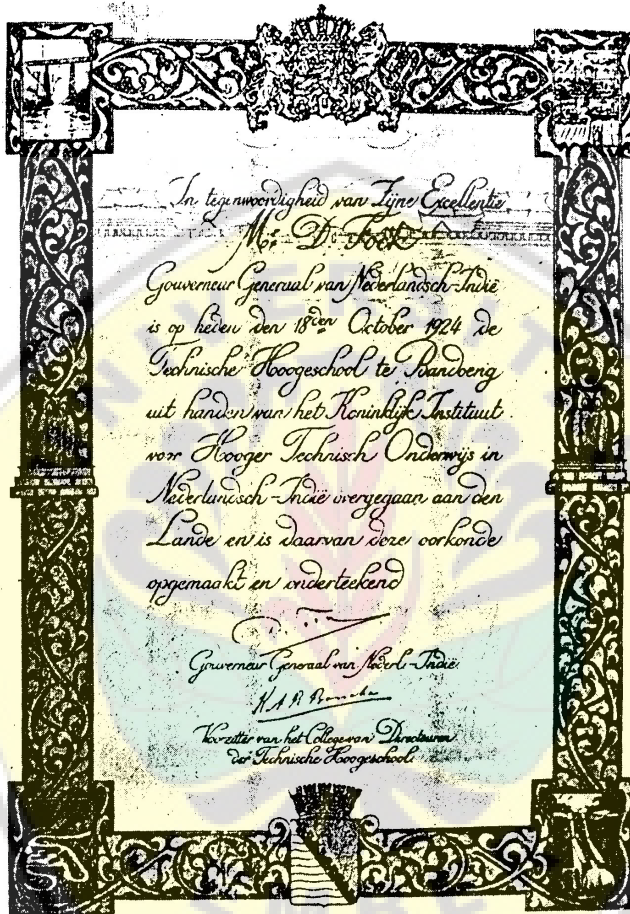 In tegenwoordigheid van Zijne Excellentie
Mr. D. Fock
Gouverneur Generaal van Nederlandsch-Indië
is op heden den 18den October 1924 de
Technische Hoogeschool te Bandoeng
uit handen van het Koninklijk Instituut
voor Hooger Technisch Onderwijs in
Nederlandsch-Indië overgegaan aan den
Lande en is daarvan deze oorkonde
opgemaakt en onderteekend
Gouverneur Generaal van Nederl-Indië
K A R Bosscha
Voorzitter van het College van Directeuren
der Technische Hoogeschool